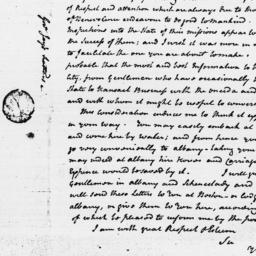 of Respect and attention which are always due to those
of Benevolence endeavours to do good to mankind.
Inspections into the State of this missions appear to
the Success of them; and I wish it was more in
to facilitate the one you are about to make
probable that the most and best Information to be
lity, from Gentlemen who have occasionally
State to transact Business with the oneida and
and with whom it might be useful to converse
This Consideration induces me to think it
in your way. You may easily embark at
and come hire by water; and from hence you
go very conveniently to albany - taking your
may indeed at albany hire Horses and Carriage
Expence would be saved by it. I will give
Gentlemen in albany and Schenectady and
will send these Letters to you at Boston - or lodge
albany, or give them to you here, according
of which be pleased to inform me by the post
I am with great Respect & Esteem